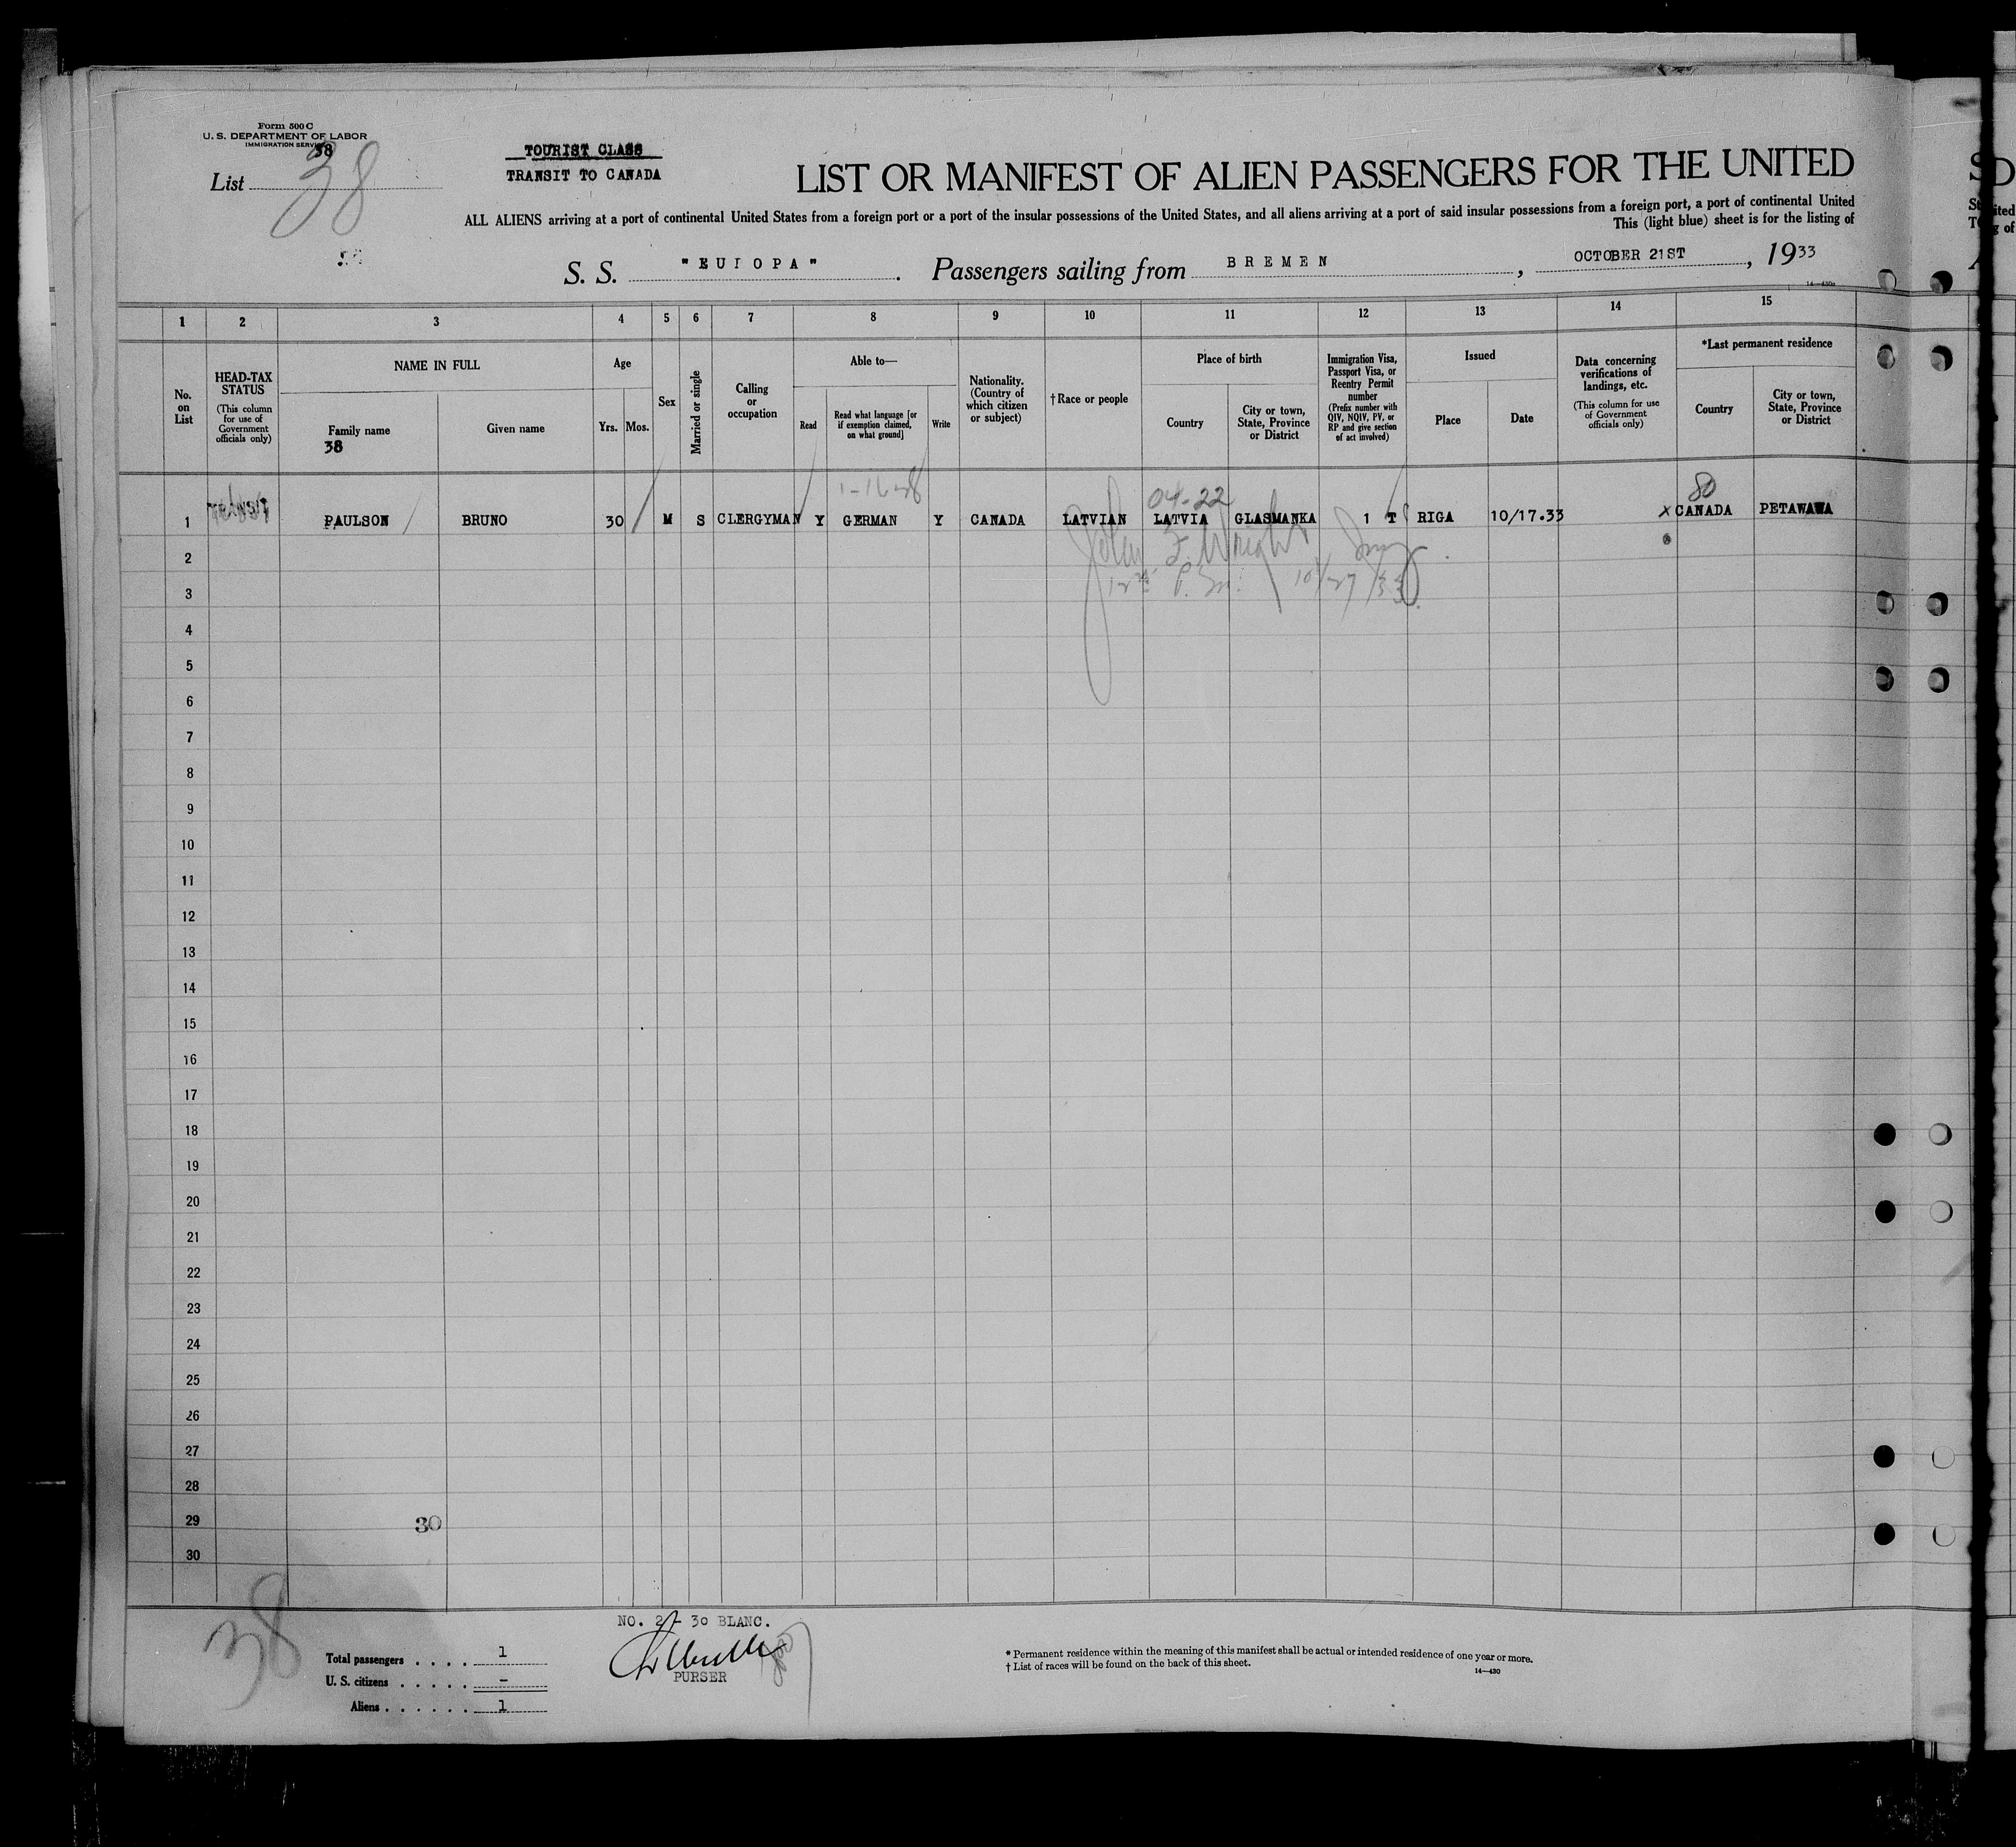 Form 500 C
U. S. DEPARTMENT OF LABOR
IMMIGRATION SERVICE
38
List 38
TOURIST CLASS
TRANSIT TO CANADA
LIST OR MANIFEST OF ALIEN PASSENGERS FOR THE UNITED
ALL ALIENS arriving at a port of continental United States from a foreign port or a port of the insular possessions of the United States, and all aliens arriving at a port of said insular possessions from a foreign port, a port of continental United
This (light blue) sheet is for the listing of
S. S. "EUIOPA". Passengers sailing from BREMEN, OCTOBER 21ST, 1933
1 2 3 4 5 6 7 8 9 10 11 12 13 14 15
No. on List
HEAD-TAX STATUS (This column for use of Government officials only)
NAME IN FULL
Family name
38
Given name
Age
Yrs. Mos.
Sex
Married or single
Calling or occupation
Able to—
Read
Read what language [or if exemption claimed, on what ground]
Write
Nationality. (Country of which citizen or subject)
†Race or people
Place of birth
Country
City or town, State, Province or District
Immigration Visa, Passport Visa, or Reentry Permit number (Prefix number with QIV, NQIV, PV, or RP and give section of act involved)
Issued
Place
Date
Data concerning verifications of landings, etc. (This column for use of Government officials only)
*Last permanent residence
Country
City or town, State, Province or District
04-22 80
1 TRANSIT PAULSON BRUNO 30 M S CLERGYMAN Y GERMAN Y CANADA LATVIAN LATVIA GLASMANKA 1 T RIGA 10/17.33 x CANADA PETAWAWA
John F. Wright
10/27/33
2
3
4
5
6
7
8
9
10
11
12
13
14
15
16
17
18
19
20
21
22
23
24
25
26
27
28
29 30
30
38
NO. 2 - 30 BLANC.
PURSER
Total passengers . . . . 1
U. S. citizens . . . . . –
Aliens . . . . . . 1
* Permanent residence within the meaning of this manifest shall be actual or intended residence of one year or more.
† List of races will be found on the back of this sheet.
14—430